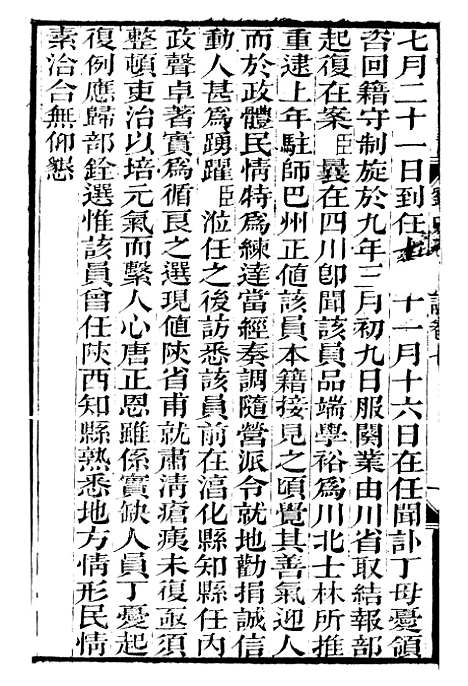 七月二十一日到任　十一月十六日在任聞訃丁母憂領
咨回籍守制旋於九年二月初九日服闋業由川省取結報部
起復在案臣曩在四川卽聞該員品端學裕爲川北士林所推
重逮上年駐師巴州正値該員本籍接見之頃覺其善氣迎人
而於政體民情特爲練達當經奏調隨營派令就地勸捐誠信
動人甚爲踴躍臣涖任之後訪悉該員前在淯化縣知縣任內
政聲卓著實爲循良之選現値陝省甫就肅淸瘡痍未復亟須
整頓吏治以培元氣而繫人心唐正恩雖係實缺人員丁憂起
復例應歸部銓選惟該員曾任陝西知縣熟悉地方情形民情
素治合無仰懇